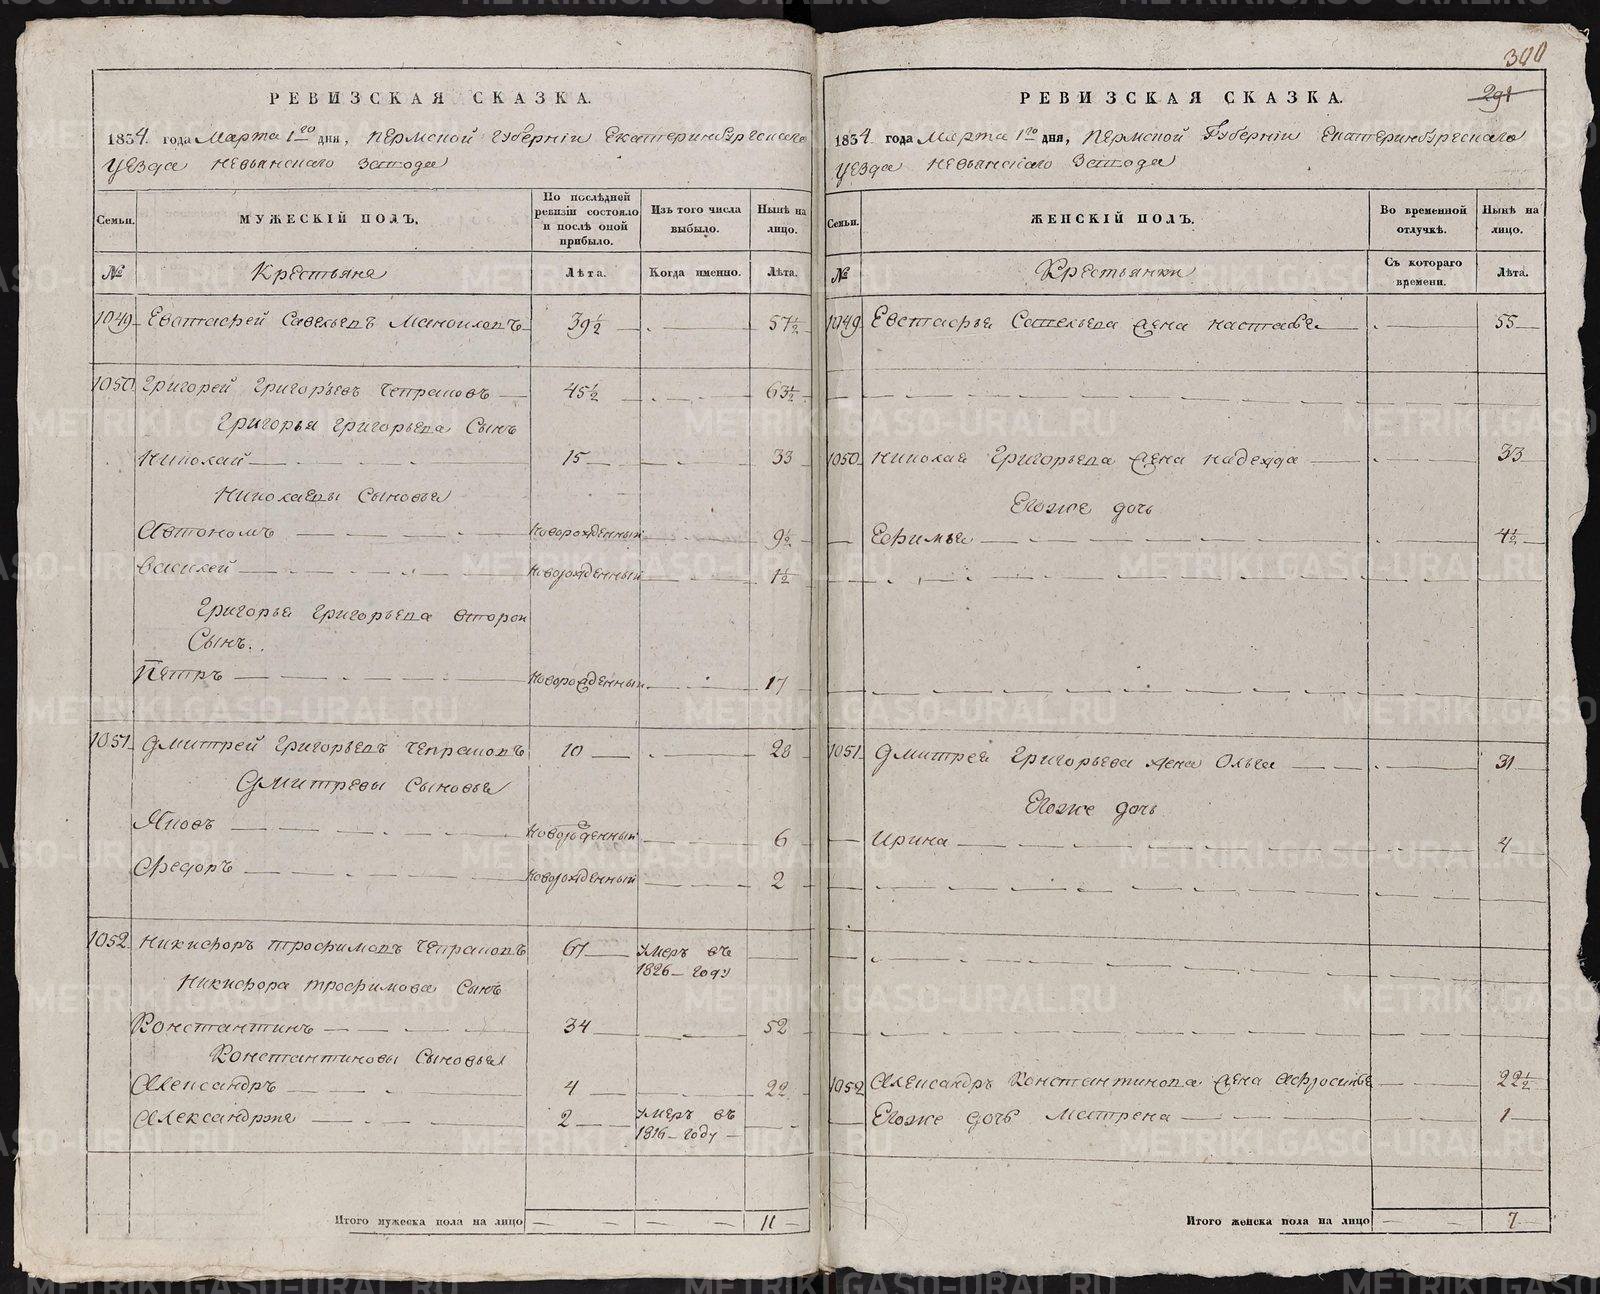 300
РЕВИЗСКАЯ СКАЗКА.
1834. года Марта 1го дня, Пермской губернiи Екатеринбургскаго
уезда Невьянскаго завода
Семьи.
МУЖЕСКIЙ ПОЛЪ,
По последней ревизiи состояло и после оной прибыло.
Изъ того числа выбыло.
Ныне на лицо.
№
Крестьяне
Лѣта.
Когда именно.
Лѣта.
1049 Евстафей Савельевъ 39½ 57½
1050 Григорей Григорьевъ Чепраковъ 45½ 63½
Григорья Григорьева Сынъ
Николай 15 33
Николаевы Сыновья
Автономъ новорожденный 9½
Василей новорожденный 1½
Григорья Григорьева второй
Сынъ.
Петръ новорожденный 17
1051 Дмитрей Григорьевъ Чепраковъ 10 28
Дмитревы Сыновья
Яковъ новорожденный 6
Федоръ новорожденный 2
1052 Никифоръ Трофимовъ Чепраковъ 61 умеръ въ
1826 году
Никифора Трофимова Сынъ
Константинъ 34 52
Константиновы Сыновья
Александръ 4 22
Александръ же 2 умеръ въ
1816 году
Итого мужеска пола на лицо 11
РЕВИЗСКАЯ СКАЗКА.
291
1834 года Марта 1го дня, Пермской Губернiи Екатеринбургскаго
уезда Невьянскаго завода
Семьи.
ЖЕНСКIЙ ПОЛЪ.
Во временной отлучкѣ.
Нынѣ на лицо.
№
Крестьянки
Съ котораго времени.
Лѣта.
1049 Евстафья Савельева жена Настасья 55
1050 Николая Григорьева жена Надежда 33
Ево же дочь
Ефимья 4½
1051 Дмитрея Григорьева жена Ольга 31
Ево же дочь
Ирина 4
1052 Александръ Константинова жена Афросинья 22½
Ево же дочь Матрена 1
Итого женска пола на лицо 7
METRIKI.GASO-URAL.RU